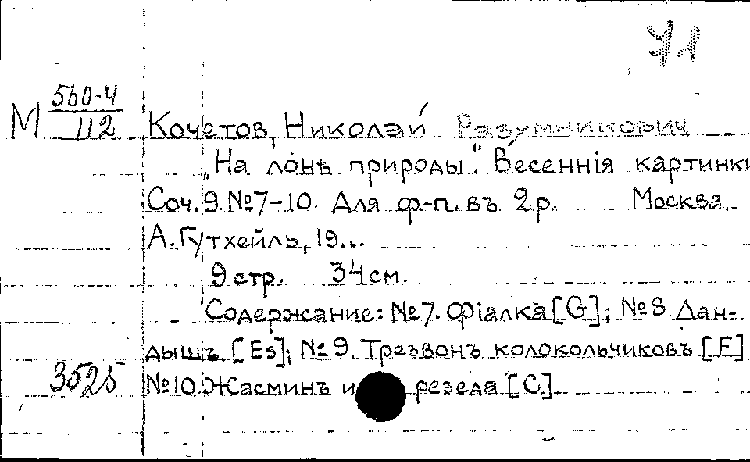 71
М 560-4
112 Кочетов, Николай Разумникович
"На лонѣ природы." Весеннія картинки
Соч. 9. №7-10. Для ф-п. въ 2 р. Москва
А. Гутхейль, 19...
9 стр. 34 см.
Содержание: №7. Фіалка [G]; №8 Лан-
дышъ [Es]; №9. Трезвонъ колокольчиковъ [F]
3525 №10. Жасминъ и резеда [C].